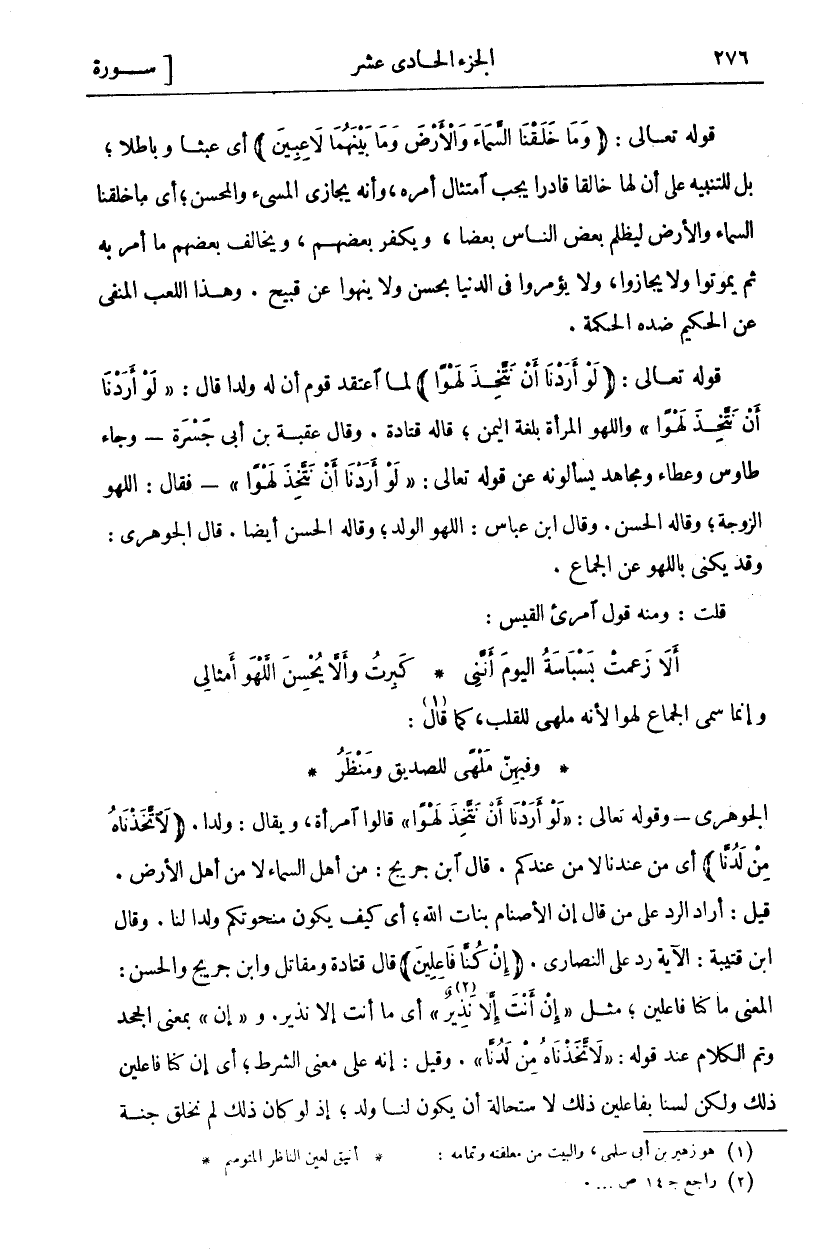 ٢٧٦ الجزء الحادى عشر [ ســورة
قوله تعـالى : ﴿ وَمَا خَلَقْنَا السَّمَاءَ وَالْأَرْضَ وَمَا بَيْنَهُمَا لَاعِبِينَ ﴾ أى عبثـا و باطلا ؛
بل للتنبيه على أن لها خالقا قادرا يجب ٱمتثال أمره ، وأنه يجازى المسىء والمحسن ؛ أى ماخلقنا
السماء والأرض ليظلم بعض النـاس بعضا ، ويكفر بعضهـم ، ويخالف بعضهم ما أمر به
ثم يموتوا ولا يجازوا ، ولا يؤمروا فى الدنيا بحسن ولا ينهوا عن قبيح . وهـذا اللعب المنفى
عن الحكيم ضده الحكمة .
قوله تعـالى : ﴿ لَوْ أَرَدْنَا أَنْ نَتَّخِـذَ لَهْوًا ﴾ لمـا ٱعتقد قوم أن له ولدا قال : « لَوْ أَرَدْنَا
أَنْ نَتَّخِـذَ لَهْوًا » واللهو المرأة بلغة اليمن ؛ قاله قتادة . وقال عقبـة بن أبى جَسْرَة — وجاء
طاوس وعطاء ومجاهد يسألونه عن قوله تعالى : « لَوْ أَرَدْنَا أَنْ نَتَّخِذَ لَهْوًا » — فقال : اللهو
الزوجة ؛ وقاله الحسن . وقال ابن عباس : اللهو الولد ؛ وقاله الحسن أيضا . قال الجوهرى :
وقد يكنى باللهو عن الجماع .
قلت : ومنه قول ٱمرئ القيس :
أَلَا زَعمتْ بَسْبَاسَةُ اليومَ أَنَّنِى * كَبِرتُ وأَلَّا يُحْسِنَ اللَّهْوَ أَمثالِى
و إنما سمى الجماع لهوا لأنه ملهى للقلب ، كما قال (١) :
* وفيهنّ مَلْهًى للصديق ومَنْظَرُ *
الجوهرى — وقوله تعالى : « لَوْ أَرَدْنَا أَنْ نَتَّخِذَ لَهْوًا » قالوا ٱمرأة ، ويقال : ولدا . ﴿ لَاتَّخَذْنَاهُ
مِنْ لَدُنَّا ﴾ أى من عندنا لا من عندكم . قال ٱبن جريج : من أهل السماء لا من أهل الأرض .
قيل : أراد الرد على من قال إن الأصنام بنات الله ؛ أى كيف يكون منحوتكم ولدا لنا . وقال
ابن قتيبة : الآية رد على النصارى . ﴿ إِنْ كُنَّا فَاعِلِينَ ﴾ قال قتادة ومقاتل وابن جريج والحسن :
المعنى ما كنا فاعلين ؛ مثـل « إِنْ أَنْتَ إِلَّا نَذِيرٌ (٢) » أى ما أنت إلا نذير . و « إن » بمعنى الجحد
وتم الكلام عند قوله : « لَاتَّخَذْنَاهُ مِنْ لَدُنَّا » . وقيل : إنه على معنى الشرط ؛ أى إن كنا فاعلين
ذلك ولكن لسنا بفاعلين ذلك لا ستحالة أن يكون لنـا ولد ؛ إذ لو كان ذلك لم نخلق جنـة
(١) هو زهير بن أبى سلمى ، والبيت من معلقته وتمامه : * أنيق لعين الناظر المتوسم *
(٢) راجع جـ ١٤ ص ... .